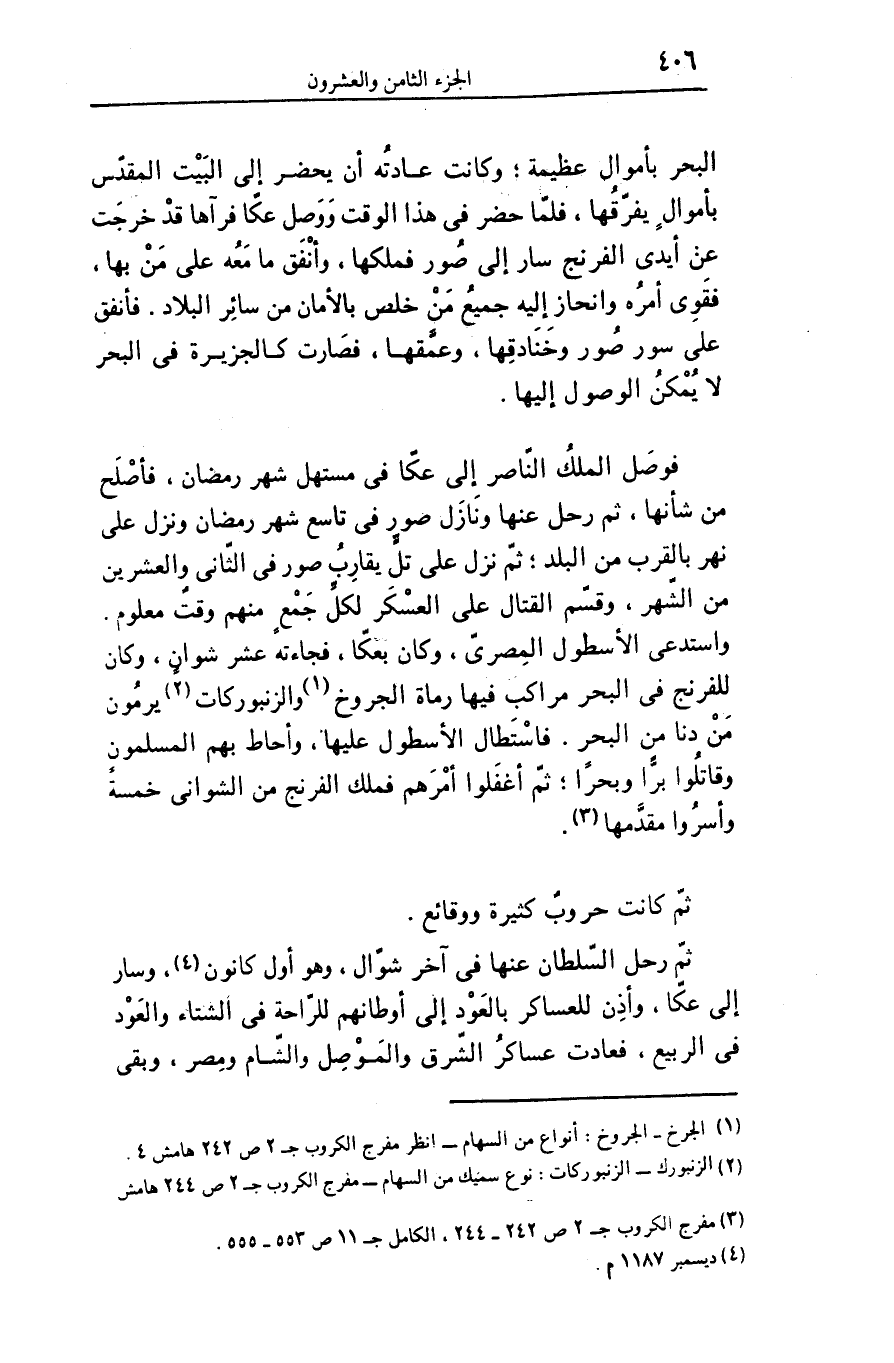 ٤٠٦
الجزء الثامن والعشرون
البحر بأموال عظيمة ؛ وكانت عـادتُه أن يحضـر إلى البَيْت المقدّس
بأموالٍ يفرّقُها ، فلمّا حضر فى هذا الوقت وَوَصل عكّا فرآها قدْ خرجَت
عن أيدى الفرنج سار إلى صُور فملكها ، وأنْفَق ما مَعُه على مَنْ بها ،
فقَوِى أمرُه وانحاز إليه جميعُ مَنْ خلص بالأمان من سائِر البلاد . فأنفق
على سور صُور وخَنَادقِها ، وعمَّقهـا ، فصَارت كـالجزيـرة فى البحر
لا يُمْكنُ الوصول إليها .
فوصَل الملكُ النّاصر إلى عكّا فى مستهل شهر رمضان ، فأصْلَح
من شأنها ، ثم رحل عنها ونَازَل صور فى تاسع شهر رمضان ونزل على
نهر بالقرب من البلد ؛ ثمّ نزل على تلٍّ يقارِبُ صور فى الثّانى والعشرين
من الشّهر ، وقسّم القتال على العسْكَر لكلِّ جَمْعٍ منهم وقتٌ معلوم .
واستدعى الأسطول المِصرىّ ، وكان بعَكّا ، فجاءته عشر شوانٍ ، وكان
للفرنج فى البحر مراكبَ فيها رماة الجروخ (١) والزنبوركات (٢) يرمُون
مَنْ دنا من البحر . فاسْتَطال الأسطول عليها، وأحاط بهم المسلمون
وقاتلُوا برًّا وبحرًا ؛ ثمّ أغفَلوا أمْرَهم فملك الفرنج من الشوانى خمسةً
وأسرُوا مقدَّمها (٣) .
ثمّ كانت حروبٌ كثيرة ووقائع .
ثمّ رحل السّلطان عنها فى آخر شوّال ، وهو أول كانون (٤) ، وسار
إلى عكّا ، وأذِن للعساكر بالعَوْد إلى أوطانهم للرّاحة فى الشتاء والعَوْد
فى الربيع ، فعادت عساكرُ الشّرق والمَـوْصِل والشّـام ومِصر ، وبقى
(١) الجرخ ـ الجروخ : أنواع من السهام ــ انظر مفرج الكروب جـ ٢ ص ٢٤٢ هامش ٤ .
(٢) الزنبورك ــ الزنبوركات : نوع سميك من السهام ــ مفرج الكروب جـ ٢ ص ٢٤٤ هامش
(٣) مفرج الكروب جـ ٢ ص ٢٤٢ ـ ٢٤٤ ، الكامل جـ ١١ ص ٥٥٣ ـ ٥٥٥ .
(٤) ديسمبر ١١٨٧ م .